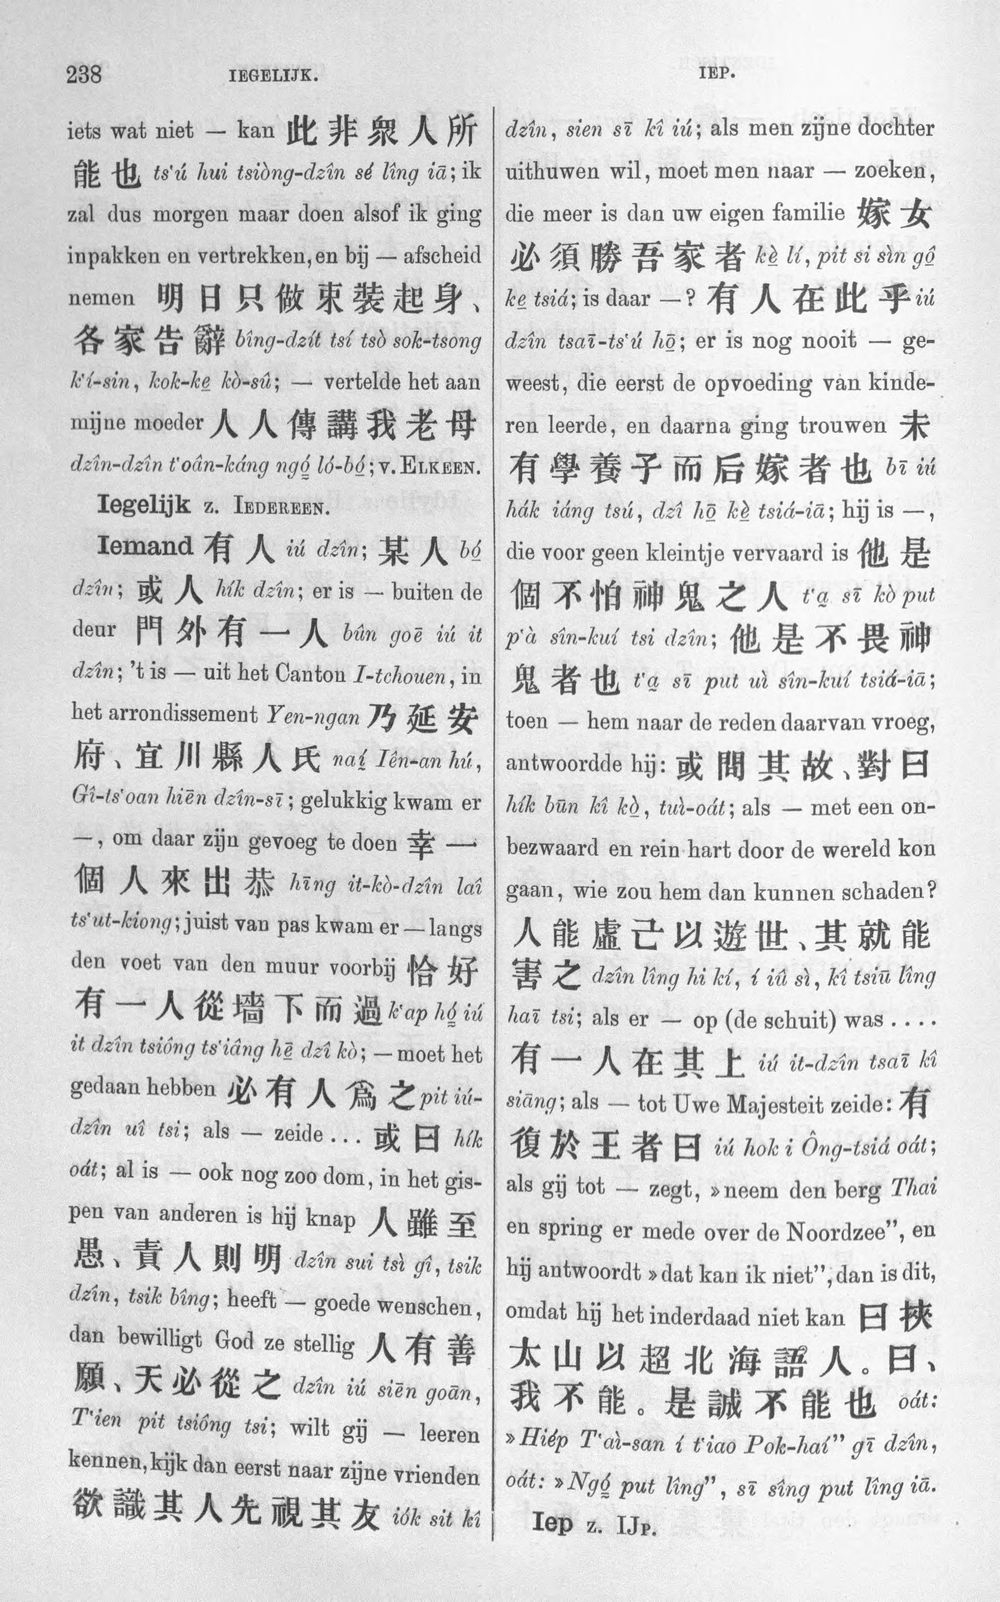 238 IEGELIJK. IEP.
iets wat niet — kan 此非衆人所
能也 ts‘ú hui tsiòng-dzîn sé lîng iā; ik
zal dus morgen maar doen alsof ik ging
inpakken en vertrekken, en bij — afscheid
nemen 明日只做束裝起身、
各家告辭 bîng-dzít tsí tsò sok-tsong
k‘í-sin, kok-ke̱ kò-sû; — vertelde het aan
mijne moeder 人人傳講我老母
dzîn-dzîn t‘oân-káng ngó̱ ló-bó̱; v. ELKEEN.
Iegelijk z. IEDEREEN.
Iemand 有人 iú dzîn; 某人 bó̱
dzîn; 或人 hík dzîn; er is — buiten de
deur 門外有一人 bûn goē iú it
dzîn; ’t is — uit het Canton I-tchouen, in
het arrondissement Yen-ngan 乃延安
府、宜川縣人氏 naí̱ Iên-an hú,
Gî-ts‘oan hiēn dzîn-sī; gelukkig kwam er
—, om daar zijn gevoeg te doen 幸一
個人來出恭 hīng it-kò-dzîn laî
ts‘ut-kiong; juist van pas kwam er — langs
den voet van den muur voorbij 恰好
有一人從墻下而過 k‘ap hó̱ iú
it dzîn tsiông ts‘iâng hē̱ dzî kò; — moet het
gedaan hebben 必有人爲之 pit iú-
dzîn uî tsi; als — zeide ... 或曰 hík
oát; al is — ook nog zoo dom, in het gis-
pen van anderen is hij knap 人雖至
愚、責人則明 dzîn sui tsì gî, tsik
dzîn, tsik bîng; heeft — goede wenschen,
dan bewilligt God ze stellig 人有善
願、天必從之 dzîn iú siēn goān,
T‘ien pit tsiông tsi; wilt gij — leeren
kennen, kijk dan eerst naar zijne vrienden
欲識其人先視其友 iók sit kî
dzîn, sien sī kî iú; als men zijne dochter
uithuwen wil, moet men naar — zoeken,
die meer is dan uw eigen familie 嫁女
必須勝吾家者 kè̱ lí, pit si sìn gô̱
ke̱ tsiá; is daar —? 有人在此乎 iú
dzîn tsaī-ts‘ú hō̱; er is nog nooit — ge-
weest, die eerst de opvoeding van kinde-
ren leerde, en daarna ging trouwen 未
有學養子而后嫁者也 bī iú
hák iáng tsú, dzî hō̱ kè̱ tsiá-iā; hij is —,
die voor geen kleintje vervaard is 他是
個不怕神鬼之人 t‘a̱ sī kò put
p‘à sîn-kuí tsi dzîn; 他是不畏神
鬼者也 t‘a̱ sī put uì sîn-kuí tsiá-iā;
toen — hem naar de reden daarvan vroeg,
antwoordde hij: 或問其故、對曰
hík būn kî kò̱, tuì-oát; als — met een on-
bezwaard en rein hart door de wereld kon
gaan, wie zou hem dan kunnen schaden?
人能虛己以遊世、其就能
害之 dzîn lîng hi kí, í iû sì, kî tsiū lîng
haī tsi; als er — op (de schuit) was ....
有一人在其上 iú it-dzîn tsaī kî
siāng; als — tot Uwe Majesteit zeide: 有
復於王者曰 iú hok i Ông-tsiá oát;
als gij tot — zegt, »neem den berg Thai
en spring er mede over de Noordzee”, en
hij antwoordt »dat kan ik niet”, dan is dit,
omdat hij het inderdaad niet kan 曰挾
太山以超北海語人。曰、
我不能。是誠不能也 oát:
»Hiép T‘aì-san í t‘iao Pok-haí” gī dzîn,
oát: »Ngó̱ put lîng”, sī sîng put lîng iā.
Iep z. IJP.